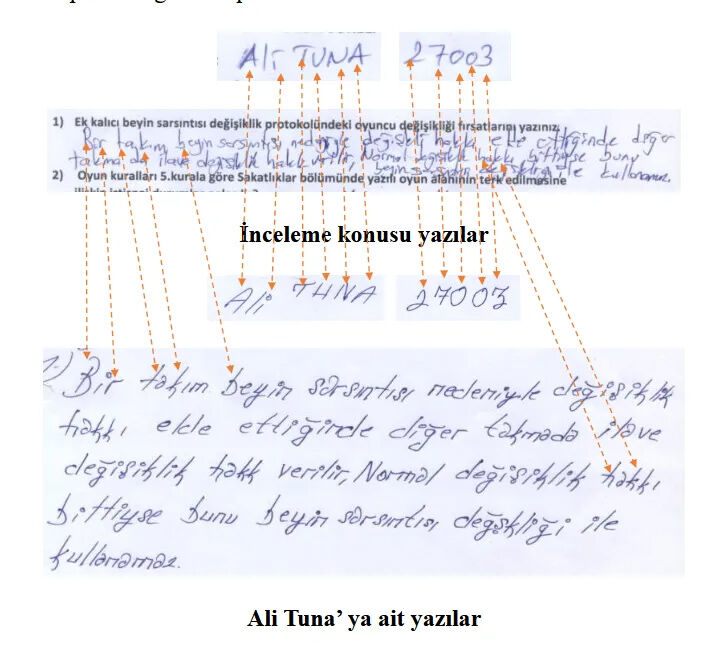 Ali TUNA 27003
1) Ek kalıcı beyin sarsıntısı değişiklik protokolündeki oyuncu değişikliği fırsatlarını yazınız.
Bir takım beyin sarsıntısı nedeniyle değişiklik hakkı elde ettiğinde diğer
takıma da ilave değişiklik hakkı verilir, Normal değişiklik hakkı bittiyse bunu
beyin sarsıntısı değişikliği ile kullanamaz.
2) Oyun kuralları 5.kurala göre Sakatlıklar bölümünde yazılı oyun alanının terk edilmesine
İnceleme konusu yazılar
Ali TUNA 27003
1-) Bir takım beyin sarsıntısı nedeniyle değişiklik
hakkı elde ettiğinde diğer takmada ilave
değişiklik hakk verilir, Normal değişiklik hakkı
bittiyse bunu beyin sarsıntısı değşkliği ile
kullanamaz.
Ali Tuna' ya ait yazılar